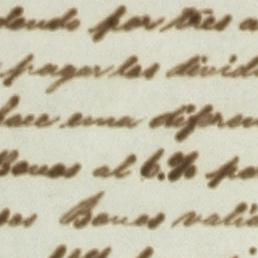 dendo por tres a
pagar los divid
hace una diferen
Bonos al 6.% po
sos Bonos valie